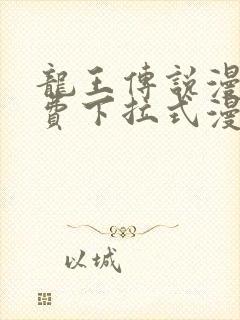 龍王傳說漫
費下拉式漫
以城